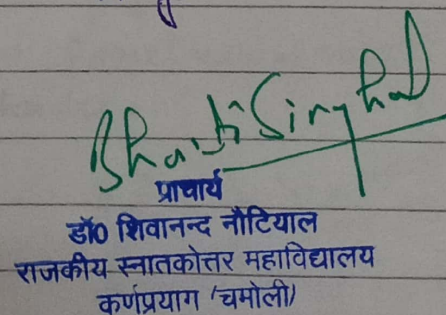 Singhal
प्राचार्य
डॉ0 शिवानन्द नौटियाल
राजकीय स्नातकोत्तर महाविद्यालय
कर्णप्रयाग (चमोली)